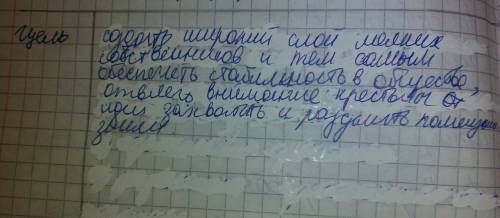 Цель создать широкий слой мелких
собственников и тем самым
обеспечить стабильность в общество,
отвлечь внимание крестьян от
идеи захватить и разделить помещичьи
земли